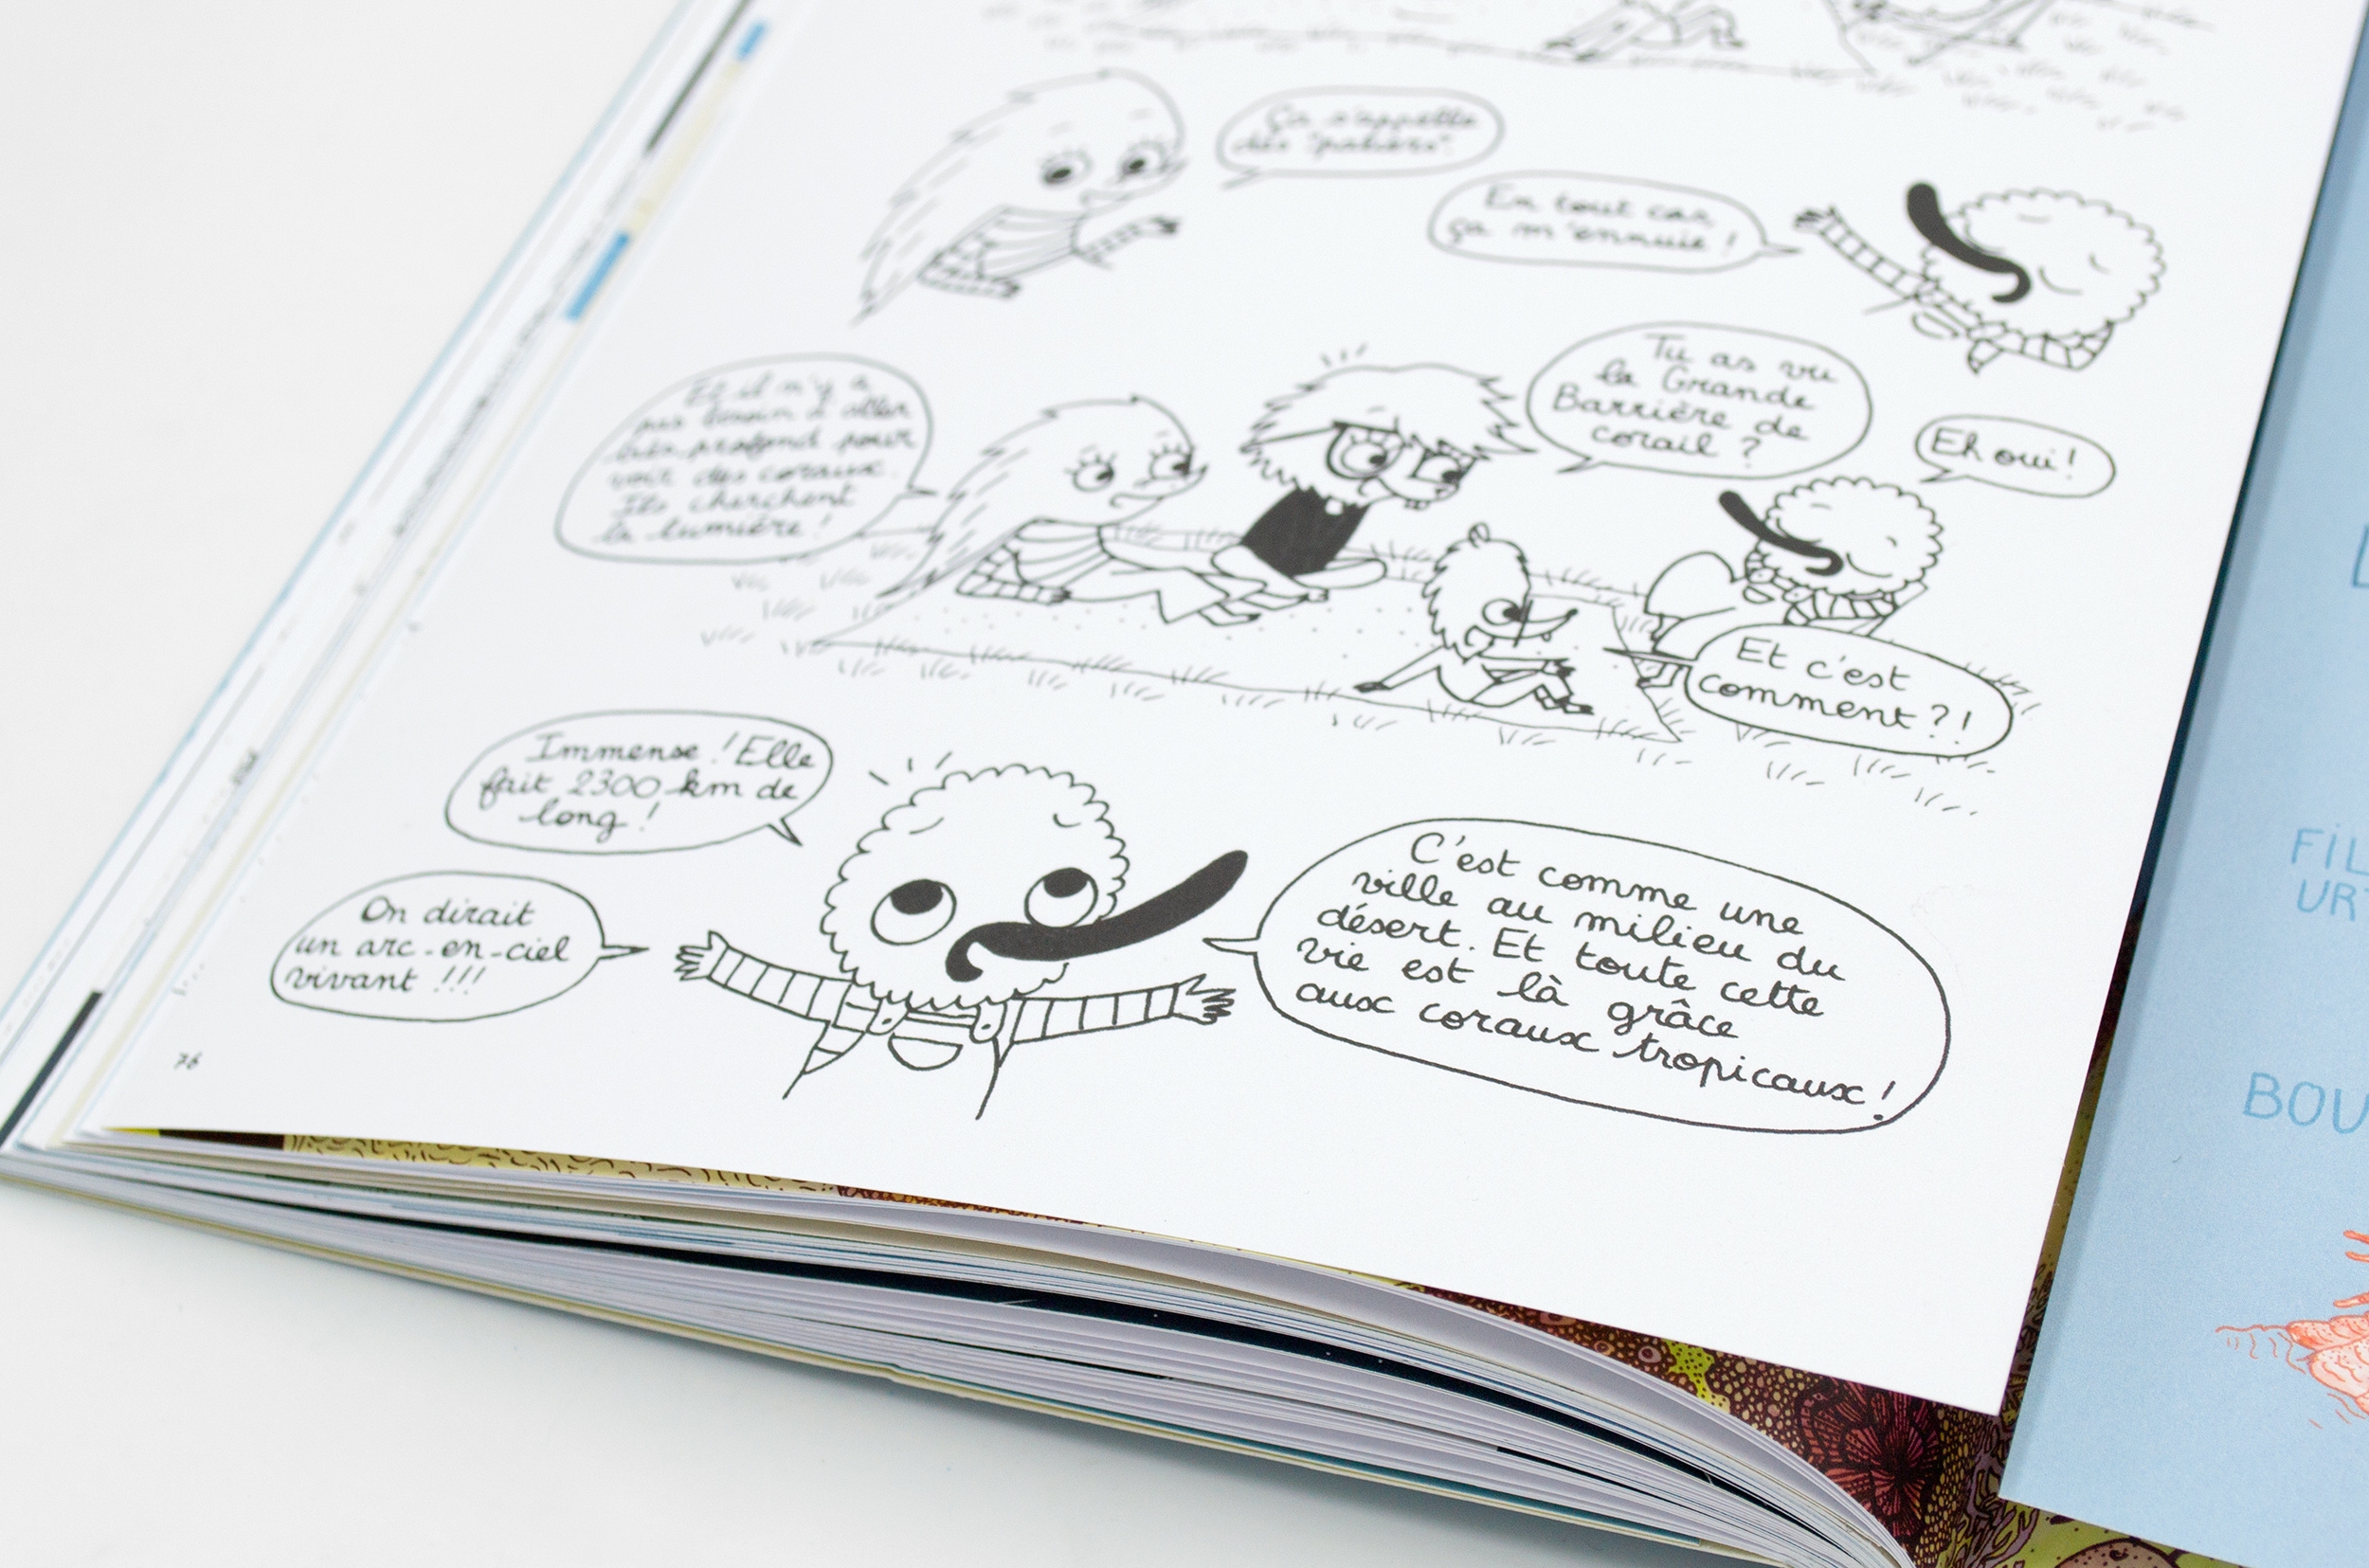 Ça s'appelle
des "paliers".
En tout cas,
ça m'ennuie !
Et il n'y a
pas besoin d'aller
très profond pour
voir des coraux.
Ils cherchent
la lumière !
Tu as vu
la Grande
Barrière de
corail ?
Eh oui !
Et c'est
comment ?!
Immense ! Elle
fait 2300 km de
long !
On dirait
un arc-en-ciel
vivant !!!
C'est comme une
ville au milieu du
désert. Et toute cette
vie est là grâce
aux coraux tropicaux !
76
FIL
URT
BOU